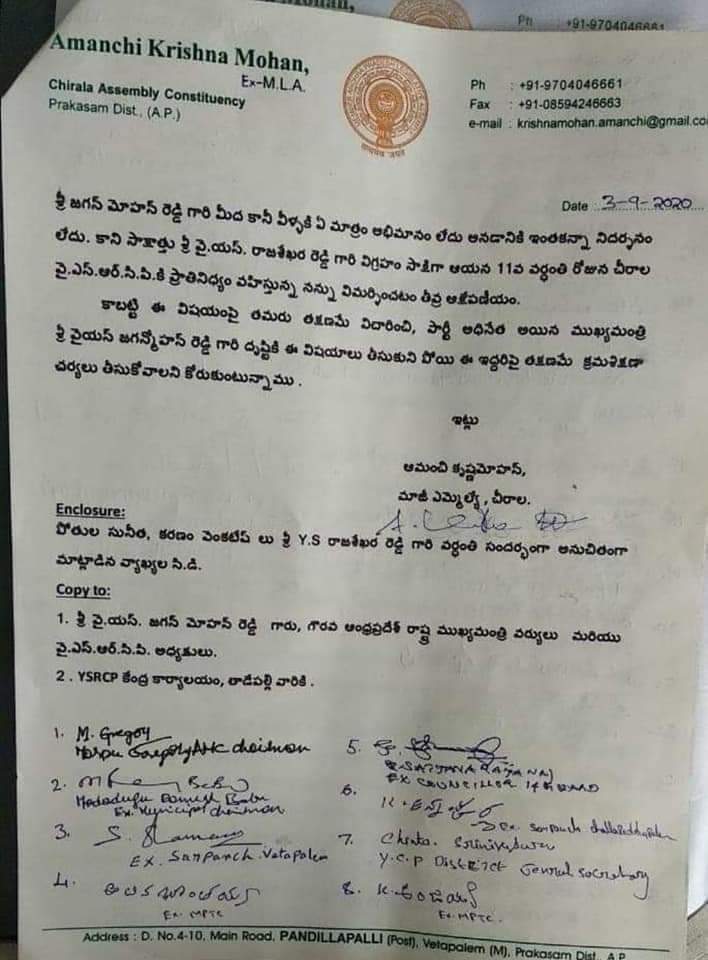 Ph +91-9704046661
Amanchi Krishna Mohan,
Ex-M.L.A.
Chirala Assembly Constituency
Prakasam Dist., (A.P.)
Ph : +91-9704046661
Fax : +91-08594246663
e-mail : krishnamohan.amanchi@gmail.co
Date : 3-9-2020
శ్రీ జగన్ మోహన్ రెడ్డి గారి మీద కానీ వీళ్ళకి ఏ మాత్రం అభిమానం లేదు అనడానికి ఇంతకన్నా నిదర్శనం
లేదు. కాని సాక్షాత్తు శ్రీ వై.యస్. రాజశేఖర రెడ్డి గారి విగ్రహం సాక్షిగా ఆయన 11వ వర్ధంతి రోజున చీరాల
వై.ఎస్.ఆర్.సి.పి.కి ప్రాతినిధ్యం వహిస్తున్న నన్ను విమర్శించటం తీవ్ర ఆక్షేపణీయం.
కాబట్టి ఈ విషయంపై తమరు తక్షణమే విచారించి, పార్టీ అధినేత అయిన ముఖ్యమంత్రి
శ్రీ వైయస్ జగన్మోహన్ రెడ్డి గారి దృష్టికి ఈ విషయాలు తీసుకుని పోయి ఈ ఇద్దరిపై తక్షణమే క్రమశిక్షణా
చర్యలు తీసుకోవాలని కోరుకుంటున్నాము.
ఇట్లు
ఆమంచి కృష్ణమోహన్,
మాజీ ఎమ్మెల్యే, చీరాల.
Enclosure:
పోతుల సునీత, కరణం వెంకటేష్ లు శ్రీ Y.S రాజశేఖర రెడ్డి గారి వర్ధంతి సందర్భంగా అనుచితంగా
మాట్లాడిన వ్యాఖ్యల సి.డి.
Copy to:
1. శ్రీ వై.యస్. జగన్ మోహన్ రెడ్డి గారు, గౌరవ ఆంధ్రప్రదేశ్ రాష్ట్ర ముఖ్యమంత్రి వర్యులు మరియు
వై.ఎస్.ఆర్.సి.పి. అధ్యక్షులు.
2. YSRCP కేంద్ర కార్యాలయం, తాడేపల్లి వారికి.
1. M. Gregory
AMC chairman
2.
Ramesh Babu
Ex. Municipal chairman
3.
EX. Sarpanch. Vetapalem
4.
Ex. MPTC
5.
EX COUNCILLOR
6.
Ex. sarpanch
7. Chinta. Srinivasarao
Y.C.P DISTRICT General secretary
8.
Ex. MPTC.
Address : D. No.4-10, Main Road, PANDILLAPALLI (Post), Vetapalem (M), Prakasam Dist., A.P.